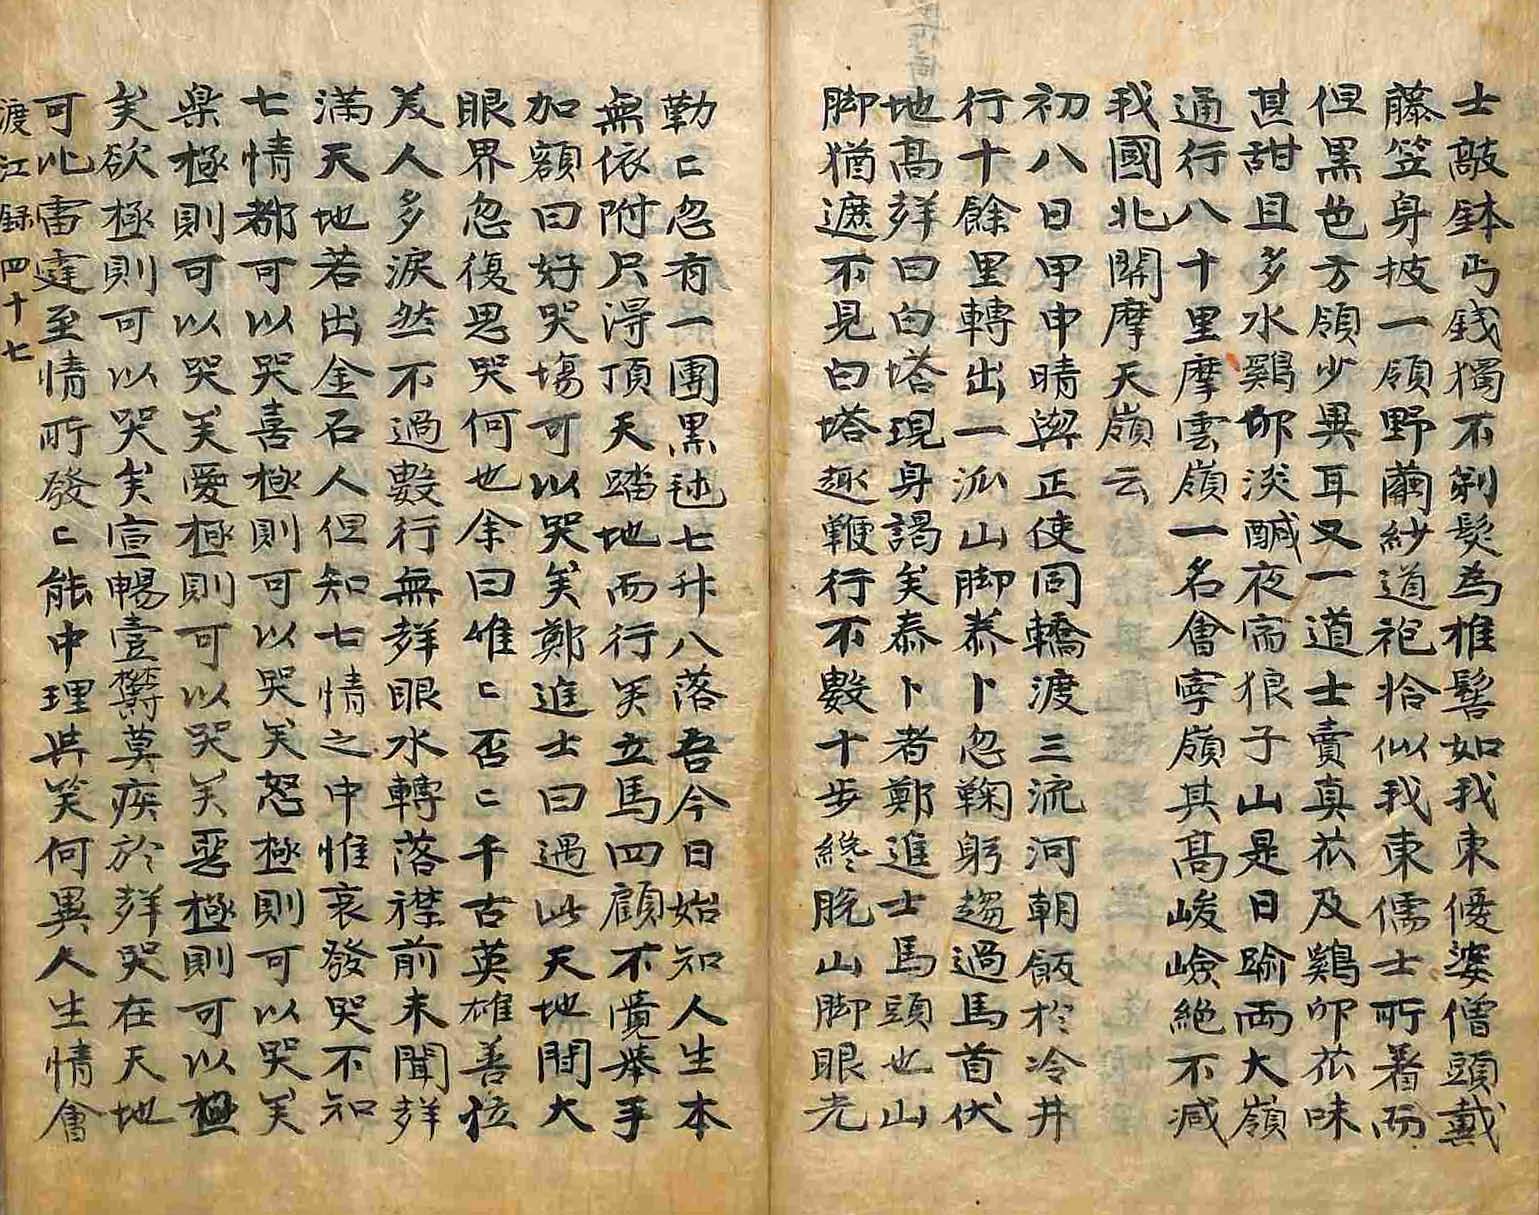 士敲鉢丐錢獨不剃髮為椎髻如我東優婆僧頭戴
藤笠身披一領野繭紗道袍恰似我東儒士所着而
但黑色方領少異耳又一道士賣真苽及鷄卵苽味
甚甜且多水鷄卵淡醎夜宿狼子山是日踰兩大嶺
通行八十里摩雲嶺一名會寧嶺其高峻嶮絶不减
我國北關摩天嶺云
初八日甲申晴與正使同轎渡三流河朝飯於冷井
行十餘里轉出一派山脚泰卜忽鞠躬趨過馬首伏
地高聲曰白塔現身謁矣泰卜者鄭進士馬頭也山
脚猶遮不見白塔趣鞭行不數十步纔脫山脚眼光
勒〻忽有一團黑毬七升八落吾今日始知人生本
無依附只得頂天踏地而行矣立馬四顧不覺擧手
加額曰好哭塲可以哭矣鄭進士曰遇此天地間大
眼界忽復思哭何也余曰唯〻否〻千古英雄善泣
美人多淚然不過數行無聲眼水轉落襟前未聞聲
滿天地若出金石人但知七情之中惟哀發哭不知
七情都可以哭喜極則可以哭矣怒極則可以哭矣
樂極則可以哭矣愛極則可以哭矣惡極則可以極
矣欲極則可以哭矣宣暢壹鬱莫疾於聲哭在天地
可比雷霆至情所發〻能中理與笑何異人生情會
渡江録 四十七